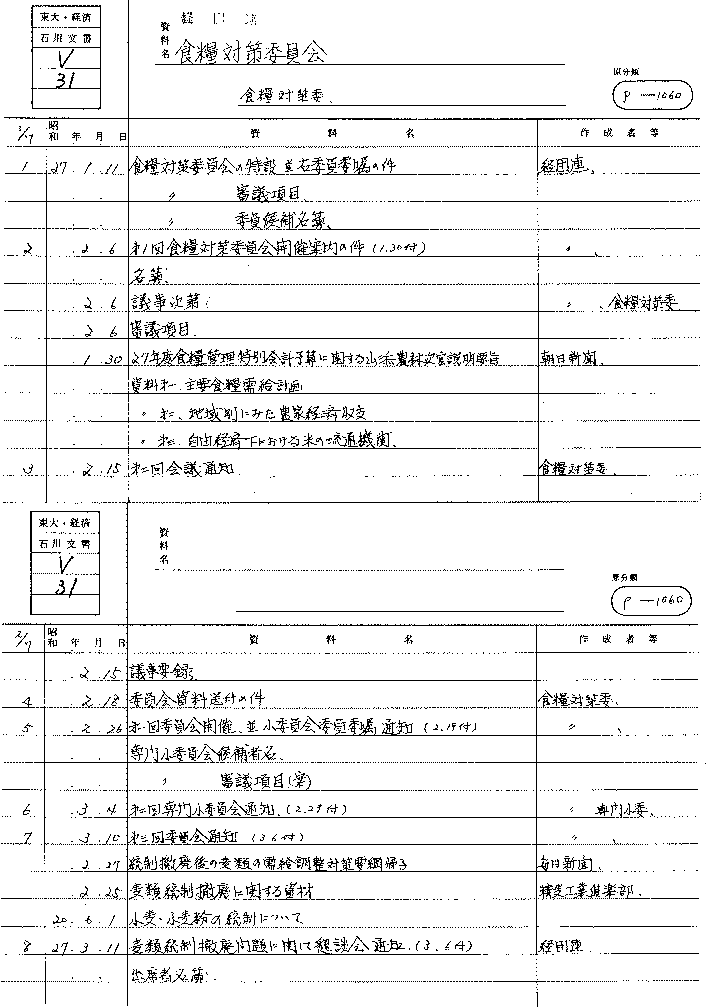 東大・経済
石川文書
V
31
資料名
経団連
食糧対策委員会
食糧対策委、
原分類
P-1060
1/7 昭和 年 月 日 資 料 名 作成者等
1 27.1.11 食糧対策委員会の特設並右委員委嘱の件 経団連、
〃 審議項目、
〃 委員候補名簿、
2 .2.6 才1回食糧対策委員会開催案内の件(1.30付) 〃、
名簿、
.2.6 議事次第、 〃、食糧対策委
.2.6 審議項目、
.1.30 27年度食糧管理特別会計予算に関する 農林次官説明要旨 朝日新聞、
資料才一、主要食糧需給計画
〃 才二、地域別にみた農家経済収支
〃 才三、自由経済下における米の流通機関、
3 .2.15 才二回会議通知 食糧対策委、
東大・経済
石川文書
V
31
資料名
原分類
P-1060
2/7 昭和 年 月 日 資 料 名 作成者等
.2.15 議事要録、
4 .2.18 委員会資料送付の件 食糧対策委、
5 .2.26 回委員会開催、並小委員会委員委嘱通知(2.19付) 〃、
専門小委員会候補者名、
〃 審議項目(案)
6 .3.4 回専門小委員会通知、(2.29付) 〃 専門小委、
7 .3.10 回委員会通知(3.6付) 〃、
.2.27 統制撤廃後の麦類の需給調整対策要綱 毎日新聞、
.2.25 麦類統制撤廃に関する資材 糧友工業倶楽部、
20.6.1 小麦・小麦粉の統制について
8 27.3.11 麦類統制撤廃問題に関して懇談会通知、(3.6付) 経団連
出席者名簿、